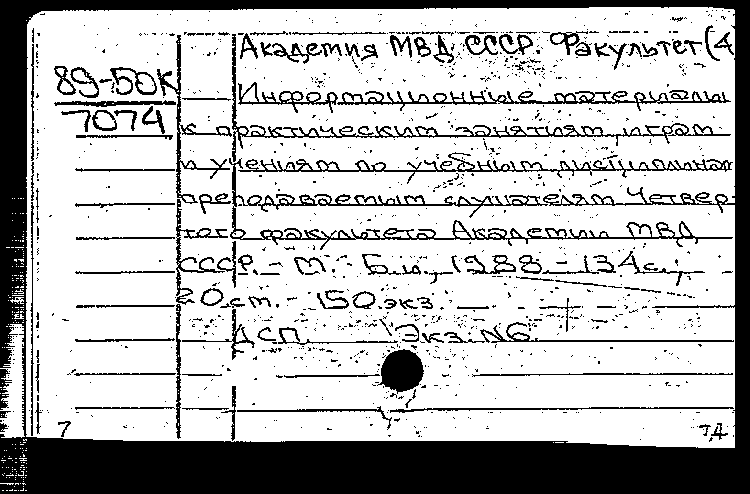 Академия МВД СССР. Факультет (4
89-50К
7074
Информационные материалы
к практическим занятиям, играм
и учениям по учебным дисциплинам
преподаваемым слушателям Четвер-
того факультета Академии МВД
СССР. - М.: Б.и., 1988. - 134с.;
20см. - 150экз.
ДСП. Экз. N6.
7